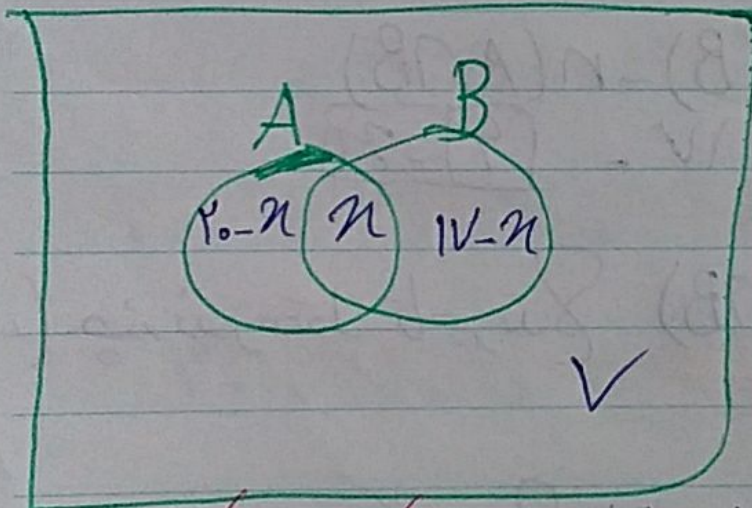 A B
۲۰-x x ۱۷-x
۷